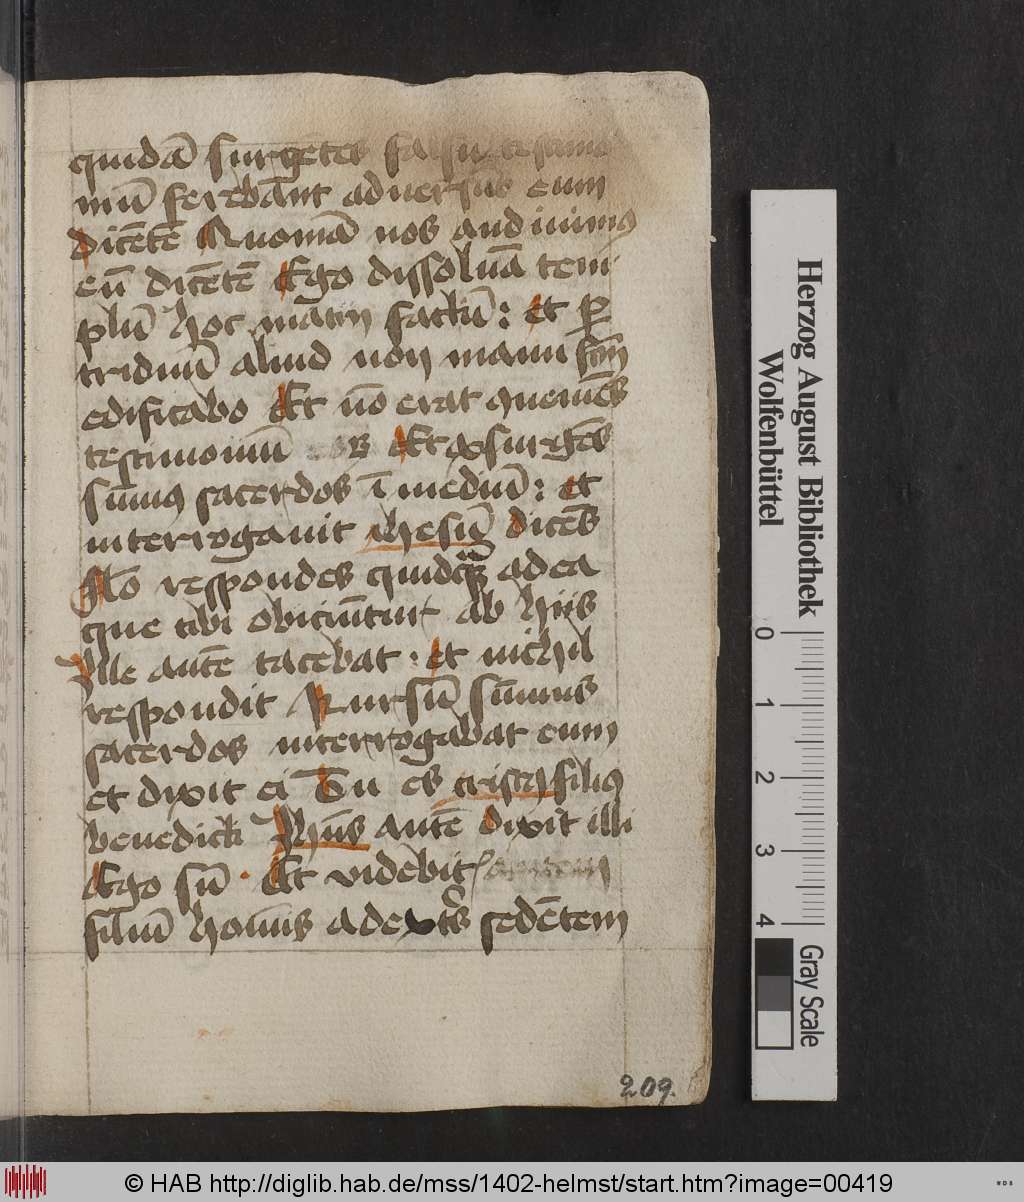 quidā surgētes falsū testimo
niū ferebāNt aduersus eum
dicētē Quoniā nos audiuimus
eū dicētē Ego dissoluā tem
plū hoc manu factū: et per
triduū aliud non manu
edificabo Et nō erat queniēs
testimoniū Et exsurgēs
sūmus sacerdos ī mediū: et
interrogauit ihesū dicēs
Nō respondes quidq̄ʒ ad ea
que tibi obiciūtur ab hijs
Ille autē tacebat · et nichil
respondit Rursū sūmus
sacerdos interrogabat eum
et dixit ei Tu es cristus filius
benedicti Ihūs autē dixit illi
Ego sū · Et videbit
filiū homīs a dextris sedētem
209.
Herzog August Bibliothek
Wolfenbüttel
0 1 2 3 4
Gray Scale
© HAB http://diglib.hab.de/mss/1402-helmst/start.htm?image=00419